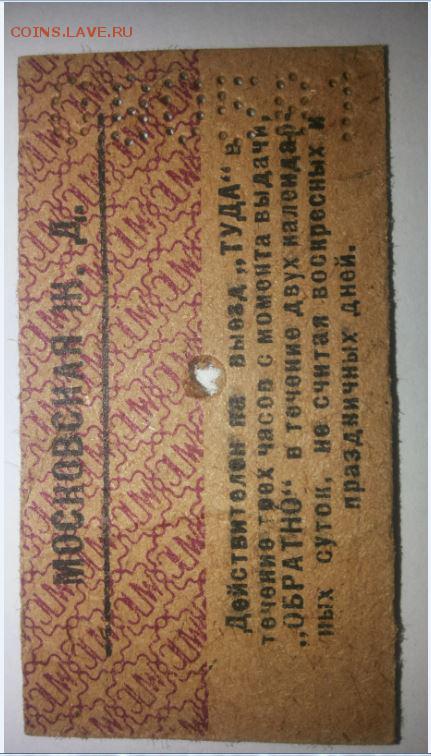 COINS.LAVE.RU
МОСКОВСКАЯ Ж. Д.
Действителен на выезд „ТУДА“ в
течение трех часов с момента выдачи,
„ОБРАТНО“ в течение двух календар-
ных суток, не считая воскресных и
праздничных дней.